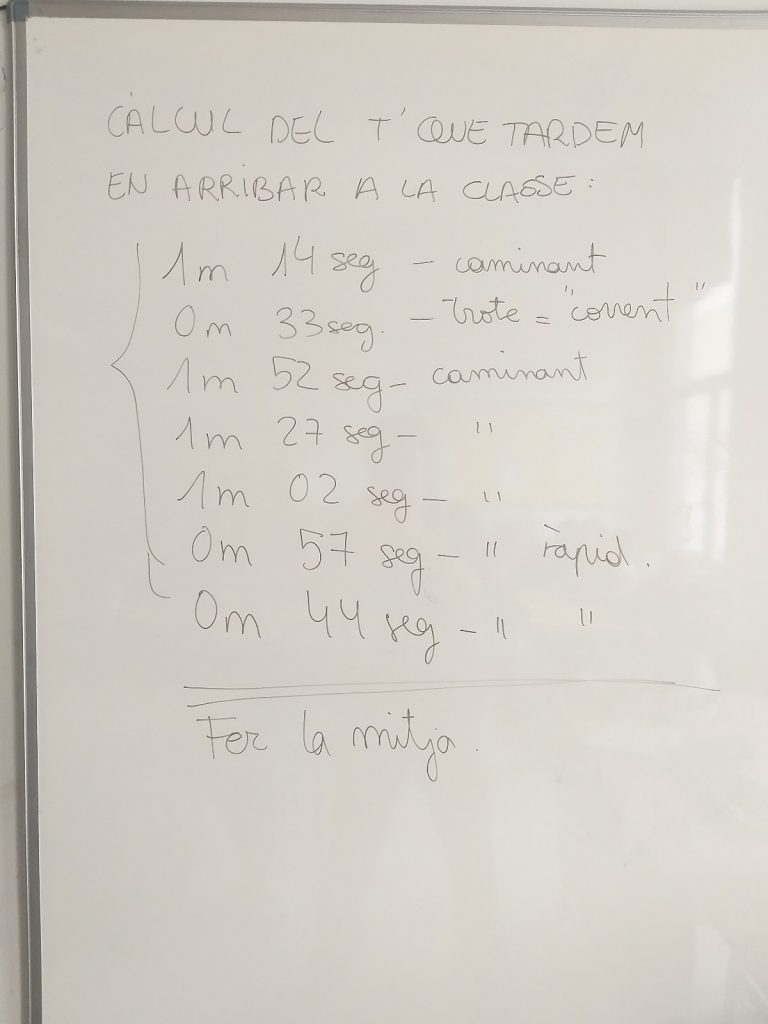 CÀLCUL DEL T' QUE TARDEM
EN ARRIBAR A LA CLASSE:
1m 14 seg - caminant
0m 33 seg. - Trote = "corrent"
1m 52 seg - caminant
1m 27 seg - "
1m 02 seg - "
0m 57 seg - " ràpid.
0m 44 seg - " "
Fer la mitja.